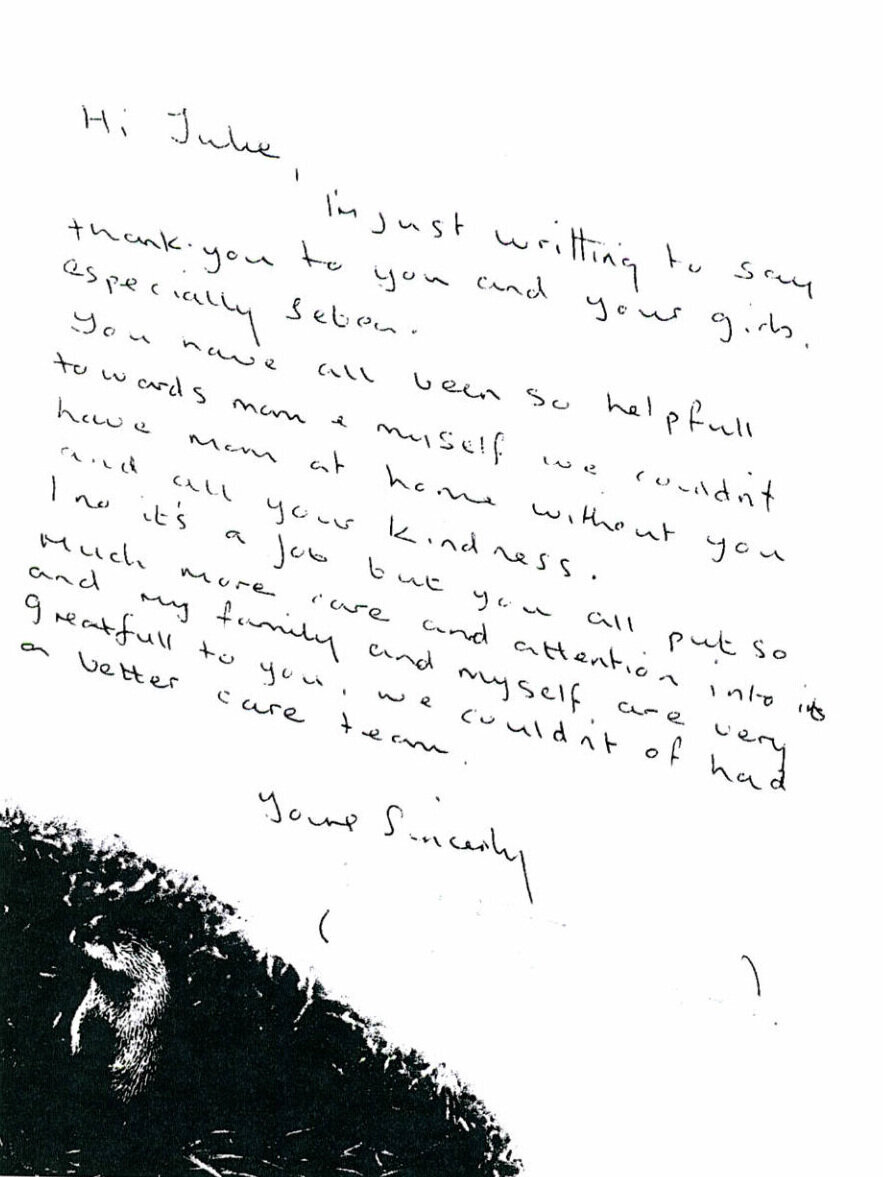 Hi Julie,
I'm just writting to say
thank.you to you and your girls.
especially
You have all been so helpfull
towards mom & myself we couldn't
have mom at home without you
and all your kindness.
I no it's a job but you all put so
much more care and attention into it
and my family and myself are very
greatfull to you, we couldn't of had
a better care team.
Yours Sincerly
(
)